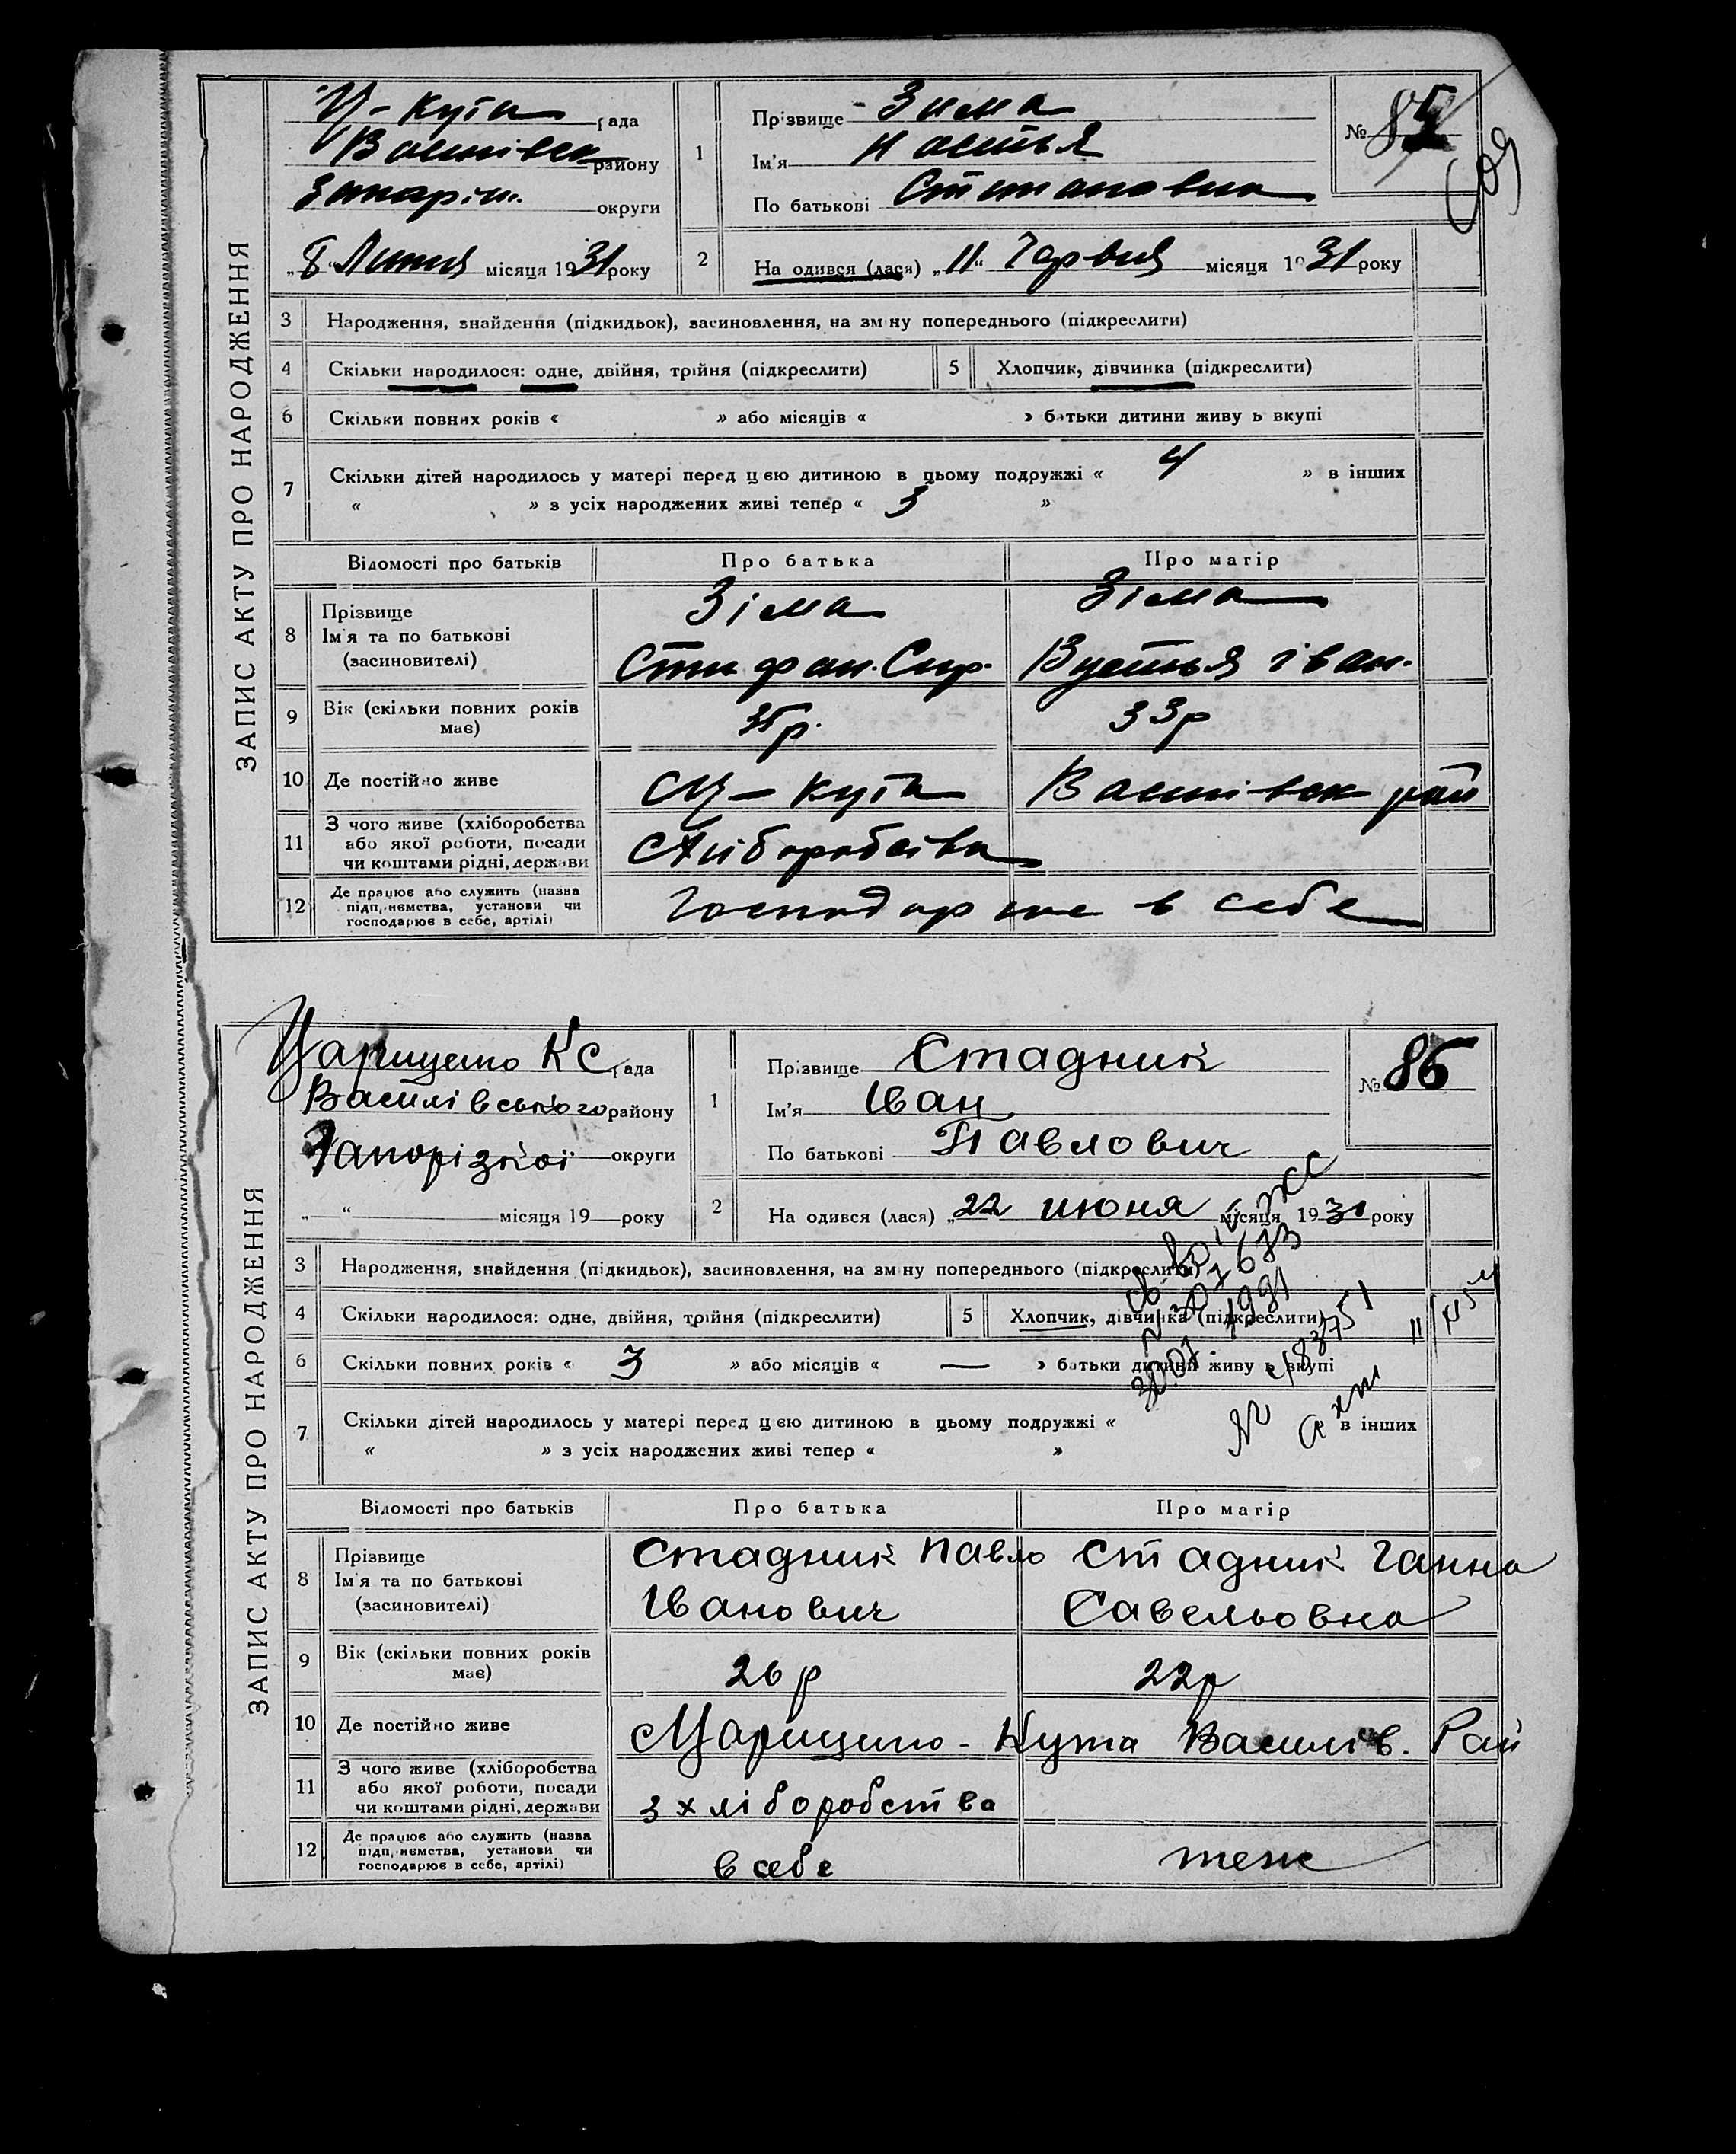 ЗАПИС АКТУ ПРО НАРОДЖЕННЯ
Ц-Кути рада
Василівськ району
Запоріж. округи
„8“ Липня місяця 1931 року
1 Прізвище Зима
Ім'я Настья
По батькові Степановна
№ 85
2 Народився (лася) „11“ Червня місяця 1931 року
3 Народження, знайдення (підкидьок), засиновлення, на зміну попереднього (підкреслити)
4 Скільки народилося: одне, двійня, трійня (підкреслити) 5 Хлопчик, дівчинка (підкреслити)
6 Скільки повних років « » або місяців « » батьки дитини живуть вкупі
7 Скільки дітей народилось у матері перед цією дитиною в цьому подружжі « 4 » в інших
« » з усіх народжених живі тепер « 3 »
Відомості про батьків Про батька Про матір
8 Прізвище Ім'я та по батькові (засиновителі)
Зіма Зіма
Стифан. Іван.
9 Вік (скільки повних років має) 35р. 33р
10 Де постійно живе Ц-Кути Василівськ рай
11 З чого живе (хліборобства або якої роботи, посади чи коштами рідні, держави Хліборобства
12 Де працює або служить (назва підприємства, установи чи господарює в себе, артілі) Господарює в себе
ЗАПИС АКТУ ПРО НАРОДЖЕННЯ
Царицено К С рада
Василівського району
Запорізкої округи
„ “ місяця 19 року
1 Прізвище Стадник
Ім'я Іван
По батькові Павлович
№ 86
2 Народився (лася) „22 июня місяця 1931 року
3 Народження, знайдення (підкидьок), засиновлення, на зміну попереднього (підкреслити)
4 Скільки народилося: одне, двійня, трійня (підкреслити) 5 Хлопчик, дівчинка (підкреслити)
6 Скільки повних років « 3 » або місяців « — » батьки дитини живуть вкупі
7 Скільки дітей народилось у матері перед цією дитиною в цьому подружжі « в інших
« » з усіх народжених живі тепер « »
Відомості про батьків Про батька Про матір
8 Прізвище Ім'я та по батькові (засиновителі)
Стадник Павло Стадник Ганна
Іванович Савельовна
9 Вік (скільки повних років має) 26р 22р
10 Де постійно живе Царицино-Кута Василів. Рай
11 З чого живе (хліборобства або якої роботи, посади чи коштами рідні, держави з хліборобства
12 Де працює або служить (назва підприємства, установи чи господарює в себе, артілі) в себе теж